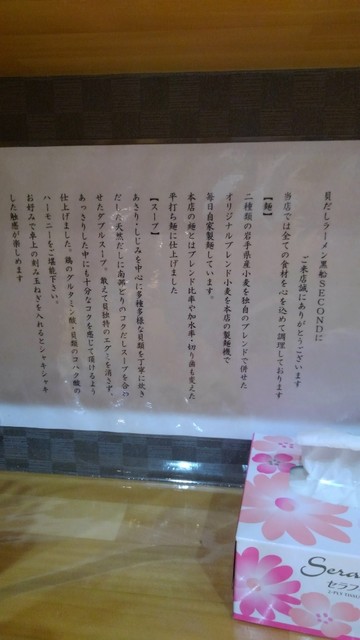 貝だしラーメン黒船SECONDに
ご来店誠にありがとうございます
当店では全ての食材を心を込めて調理しております
【麺】
二種類の岩手県産小麦を独自のブレンドで併せた
オリジナルブレンド小麦を本店の製麺機で
毎日自家製麺しています。
本店の麺とはブレンド比率や加水率・切り歯も変えた
平打ち麺に仕上げました
【スープ】
あさり・しじみを中心に多種多様な貝類を丁寧に炊き
だした天然だしに南部どりのコクだしスープを合わ
せたダブルスープ。敢えて貝独特のエグミを消さず、
あっさりした中にも十分なコクを感じて頂けるよう
仕上げました。鶏のグルタミン酸・貝類のコハク酸の
ハーモニーをご堪能下さい。
お好みで卓上の刻み玉ねぎを入れるとシャキシャキ
した触感が楽しめます
Sera
セラフ
2-PLY TISSU